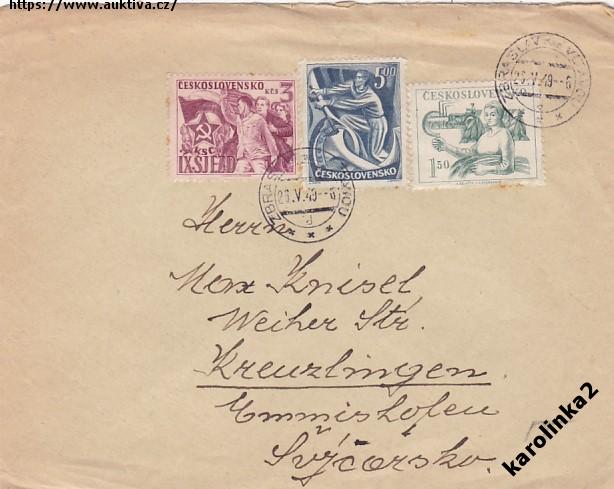 https://www.auktiva.cz/
ČESKOSLOVENSKO
KČS 3
KSČ
IX.SJEZD
5,00
ČESKOSLOVENSKO
ČESKOSLOVENSKO
1,50
ZBRASLAV NAD VLTAVOU
26.V.49--6
26.V.49--6
Herrn
Max Knisel
Weiher Str.
Kreuzlingen
Emmishofen
Švýcarsko.
karolinka2